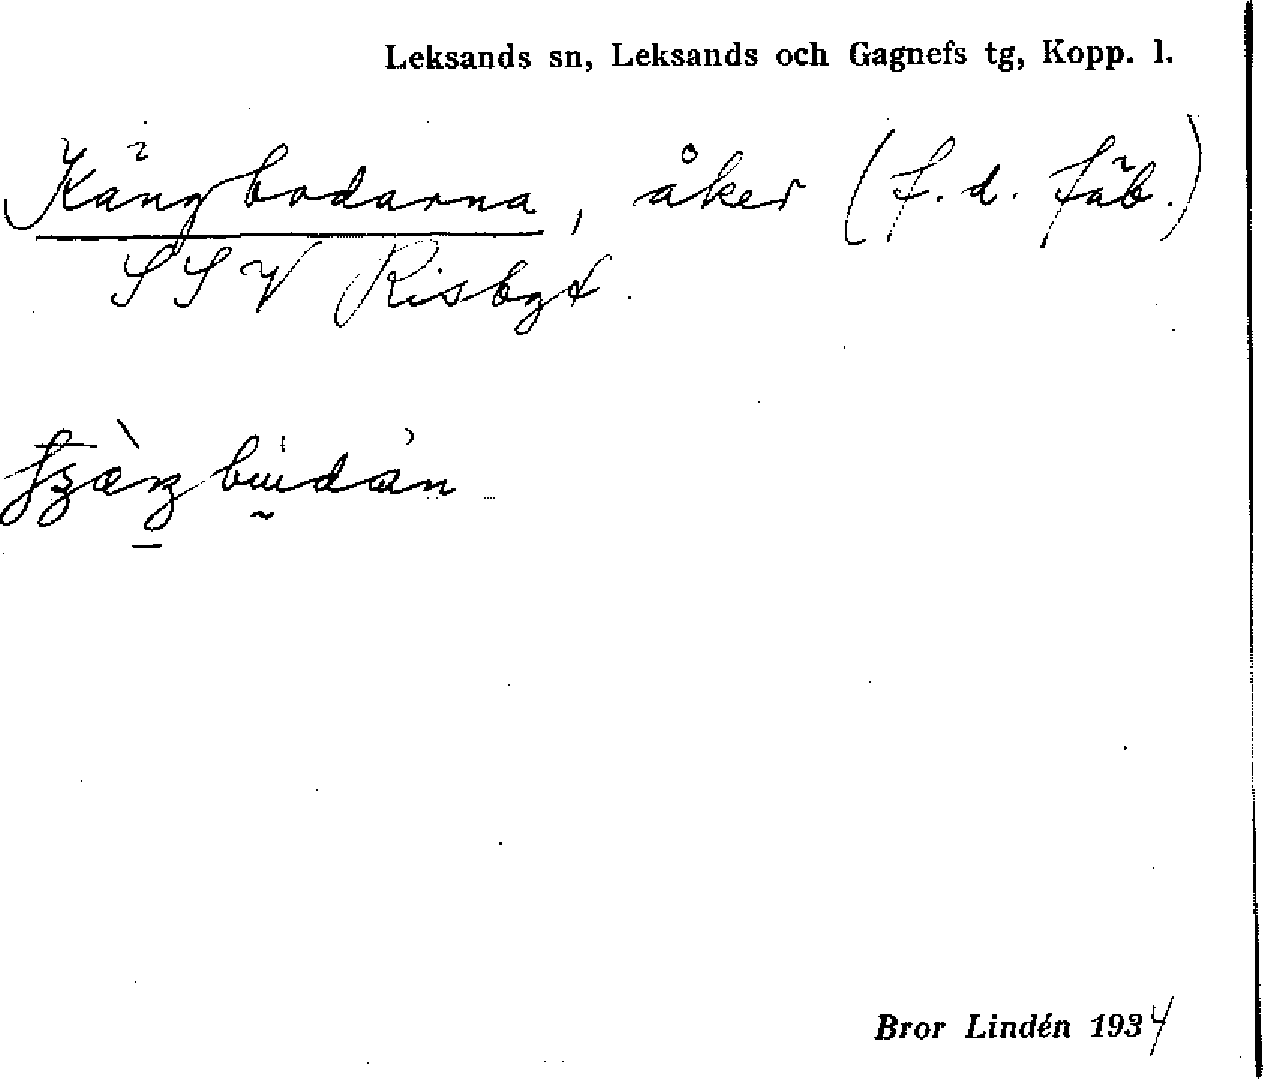 Leksands sn, Leksands och Gagnefs tg, Kopp. l.
Kängbodarna, åker (f.d. fäb.)
SSV Risbgt.
Bror Lindén 1934